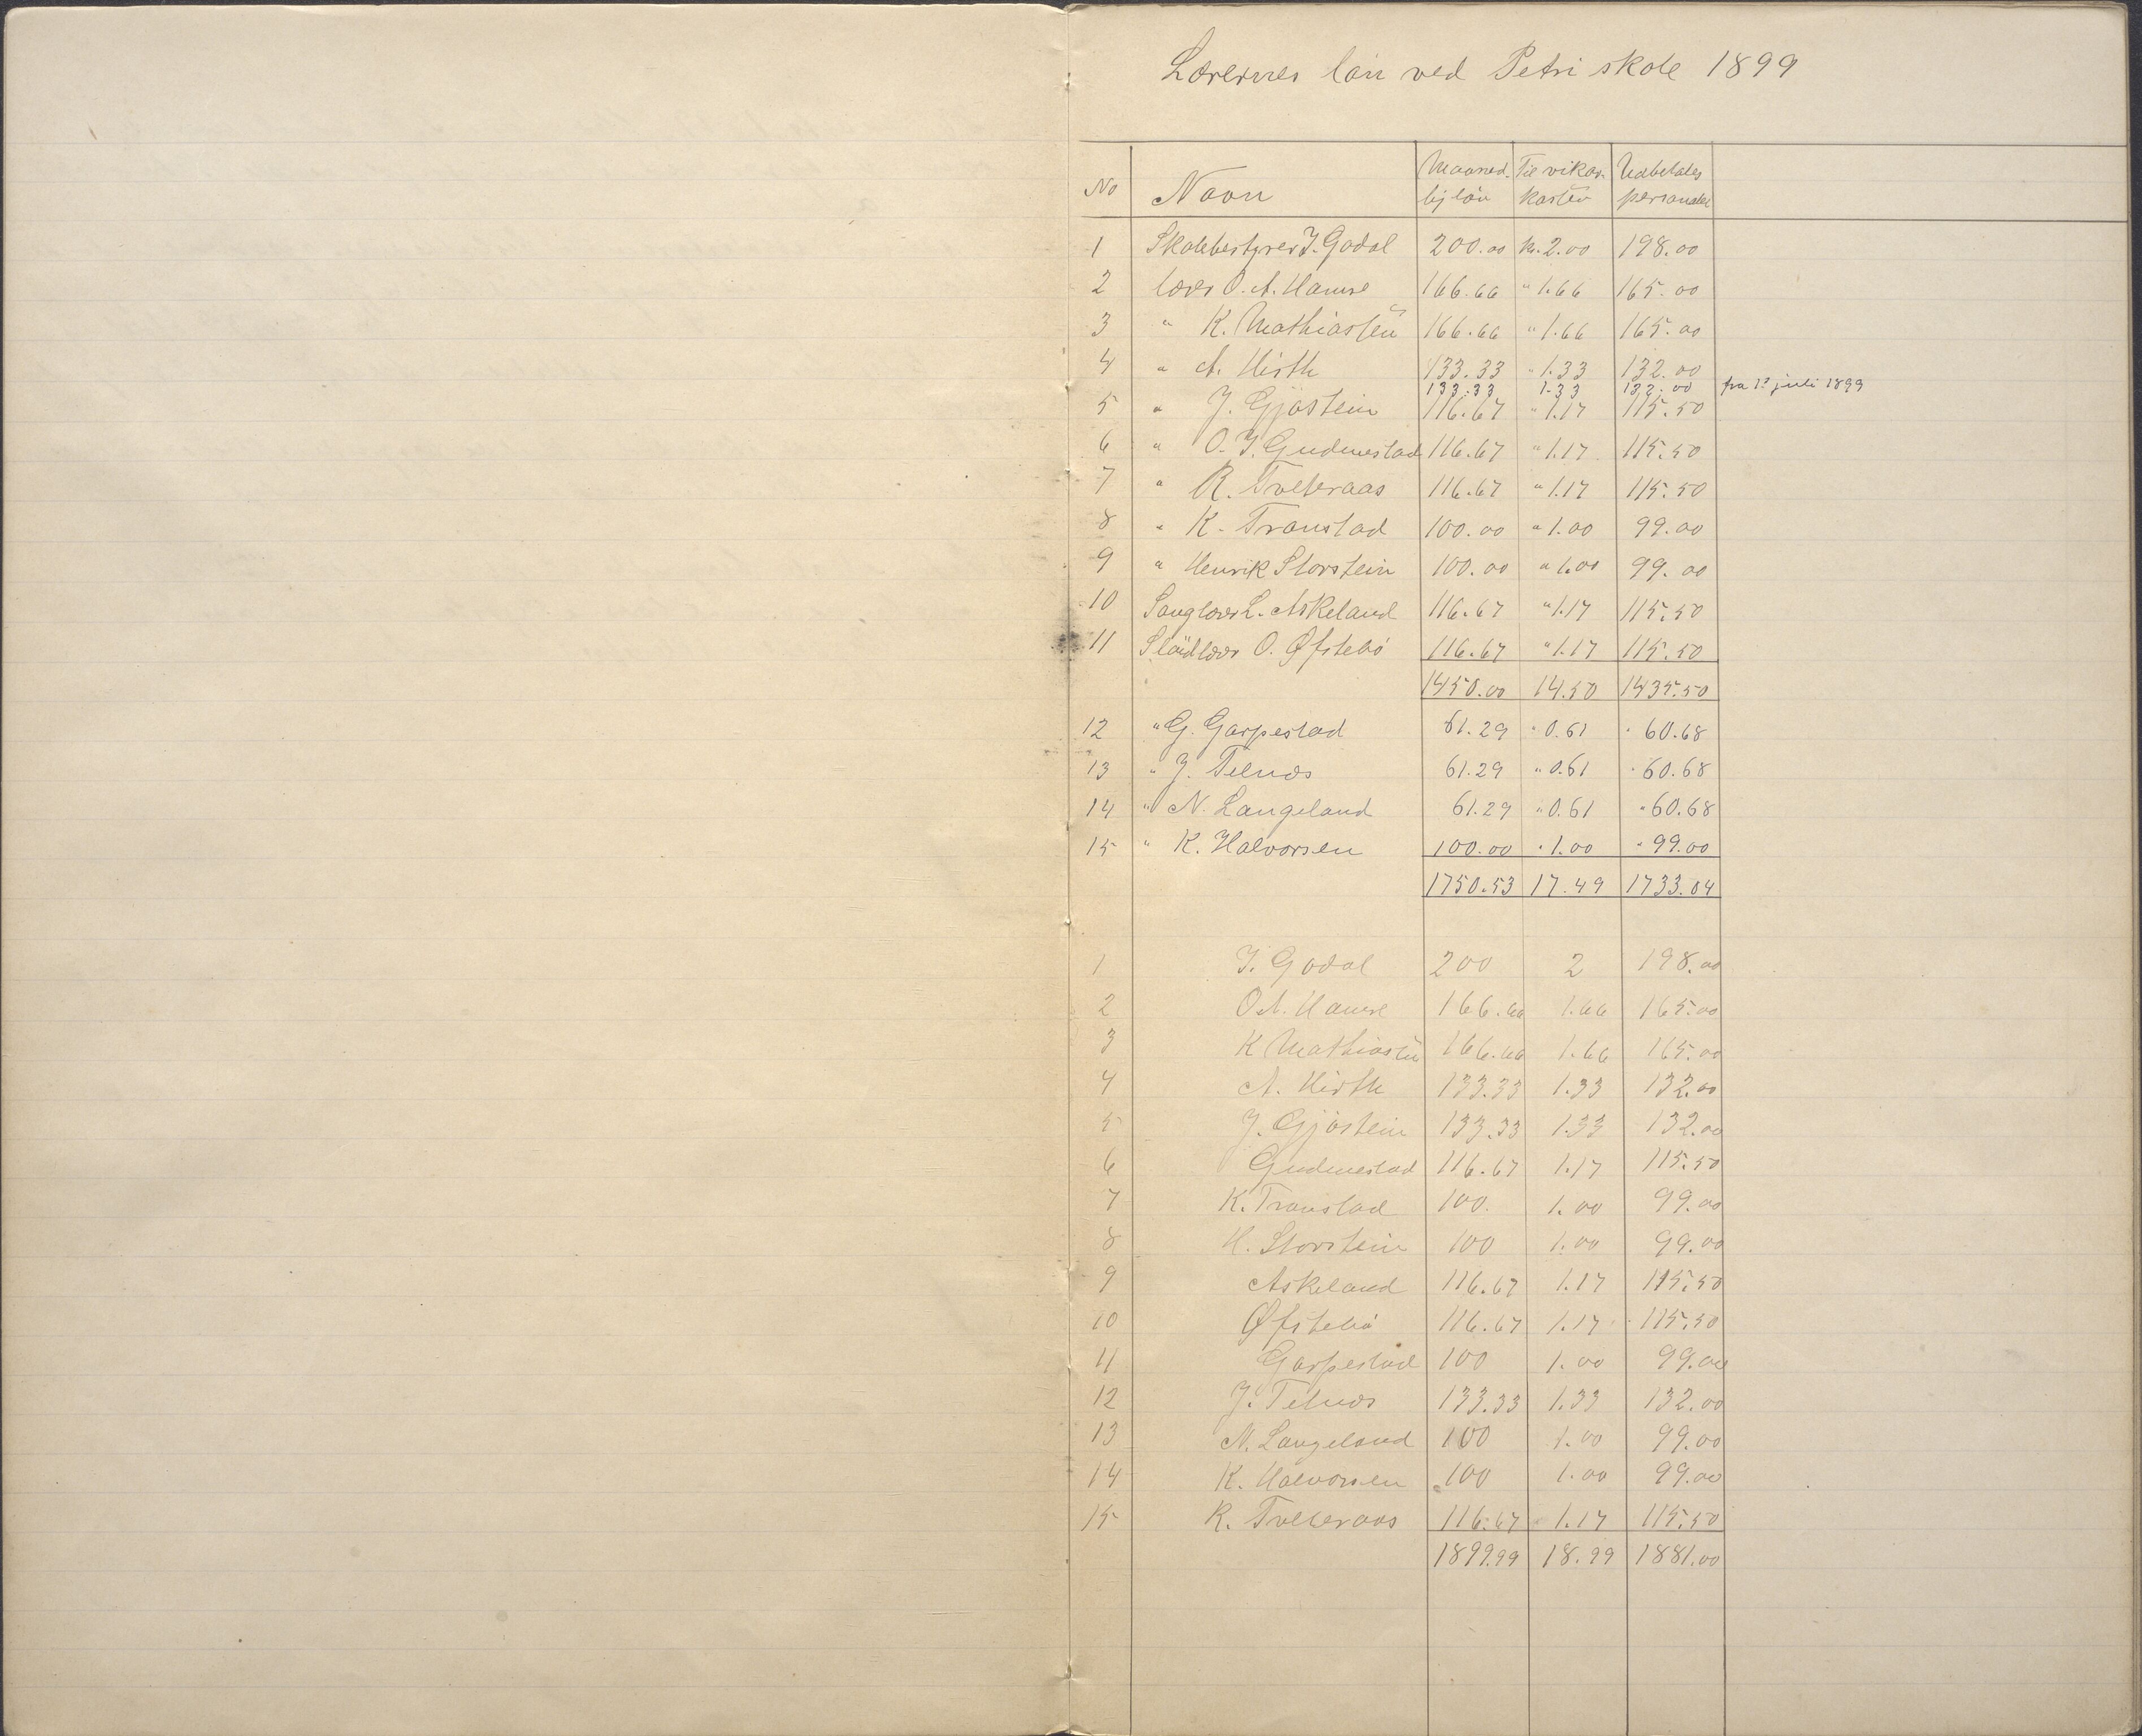 Lærernes lön ved Petri skole 1899
No Navn Maaned- Til vikar- Udbetales
lig lön kasten personalet
1 Skolebestyrer J. Gadal 200.00 kr. 2.00 198.00
2 lærer O. A. Hamre 166.66 " 1.66 165.00
3 " K. Mathiassen 166.66 " 1.66 165.00
4 " A. Hirth 133.33 " 1.33 132.00
133.33 1.33 132.00 fra 1ste juli 1899
5 " J. Gjöstein 116.67 " 1.17 115.50
6 " O. J. Gudmestad 116.67 " 1.17 115.50
7 " R. Tveteraas 116.67 " 1.17 115.50
8 " K. Transtad 100.00 " 1.00 99.00
9 " Henrik Storstein 100.00 " 1.00 99.00
10 Sanglærer L. Askeland 116.67 " 1.17 115.50
11 Slöidlærer O. Øfstebö 116.67 " 1.17 115.50
1450.00 14.50 1435.50
12 " G. Garpestad 61.29 " 0.61 " 60.68
13 " J. Telnæs 61.29 " 0.61 " 60.68
14 " N. Langeland 61.29 " 0.61 " 60.68
15 " K. Halvorsen 100.00 " 1.00 " 99.00
1750.53 17.49 1733.04
1 J. Gadal 200 2 198.00
2 O A. Hamre 166.66 1.66 165.00
3 K Mathiassen 166.66 1.66 165.00
4 A. Hirth 133.33 1.33 132.00
5 J. Gjöstein 133.33 1.33 132.00
6 Gudmestad 116.67 1.17 115.50
7 K. Transtad 100. 1.00 99.00
8 H. Storstein 100 1.00 99.00
9 Askeland 116.67 1.17 115.50
10 Øfstebö 116.67 1.17 115.50
11 Garpestad 100 1.00 99.00
12 J. Telnæs 133.33 1.33 132.00
13 N. Langeland 100 1.00 99.00
14 K. Halvorsen 100 1.00 99.00
15 R. Tveteraas 116.67 1.17 115.50
1899.99 18.99 1881.00